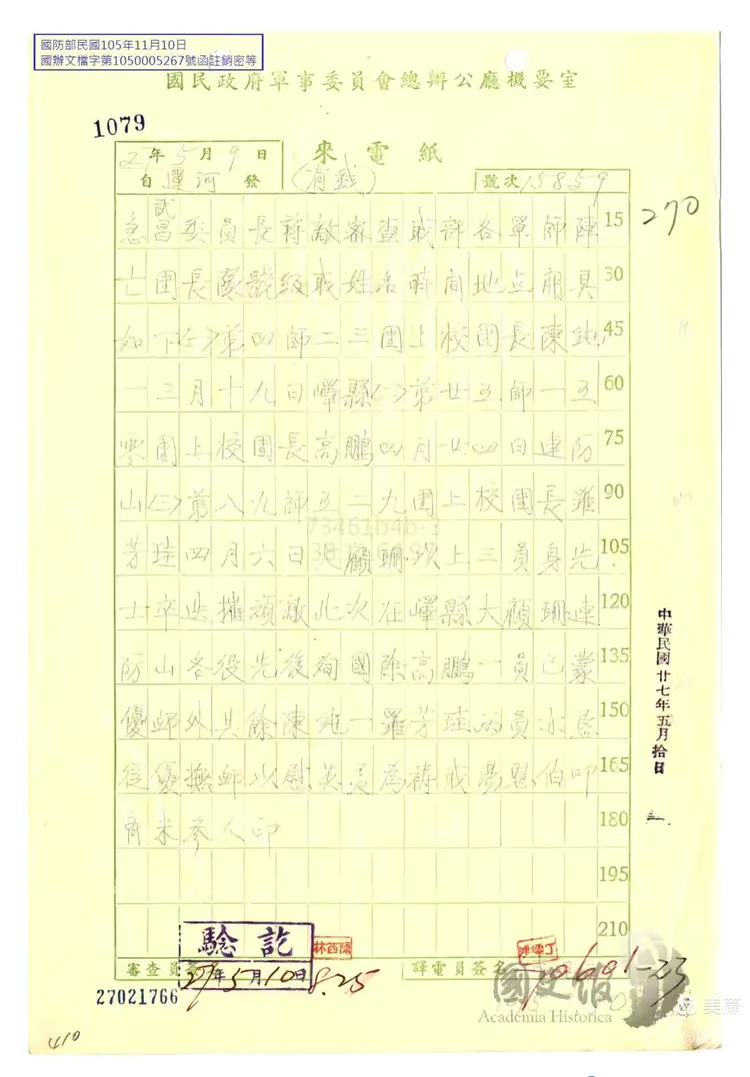 國防部民國105年11月10日
國辦文檔字第1050005267號函註銷密等
國民政府軍事委員會總辦公廳機要室
1079
27年5月9日
來電紙
自運河發
(有线)
號次15859
270
急武昌委員長蔣敵審查戒部各軍師陣 15
亡團長隊號級職姓名時间地点開具 30
如下(一)第四師二三團上校团長陳純 45
一三月十九日嶧縣(二)第廿五師一五 60
零團上校團長高鵬四月廿四日連防 75
山(三)第八九師五二九團上校團長羅 90
芳珪四月六日大顧珊以上三員身先 105
士卒迭摧頑敵此次在嶧縣大顧珊連 120
防山各役先後殉國除高鵬一員已蒙 135
優邺外其餘陳純一羅芳珪两員亦恳 150
從優撫邺以慰英灵為祷戒湯恩伯叩 165
育米參人印 180
195
210
中華民國廿七年五月拾日
驗訖
林西陳
審查員
27年5月10日
8.25
譯電員簽名
27021766
國史館
Academia Historica
410
美篇